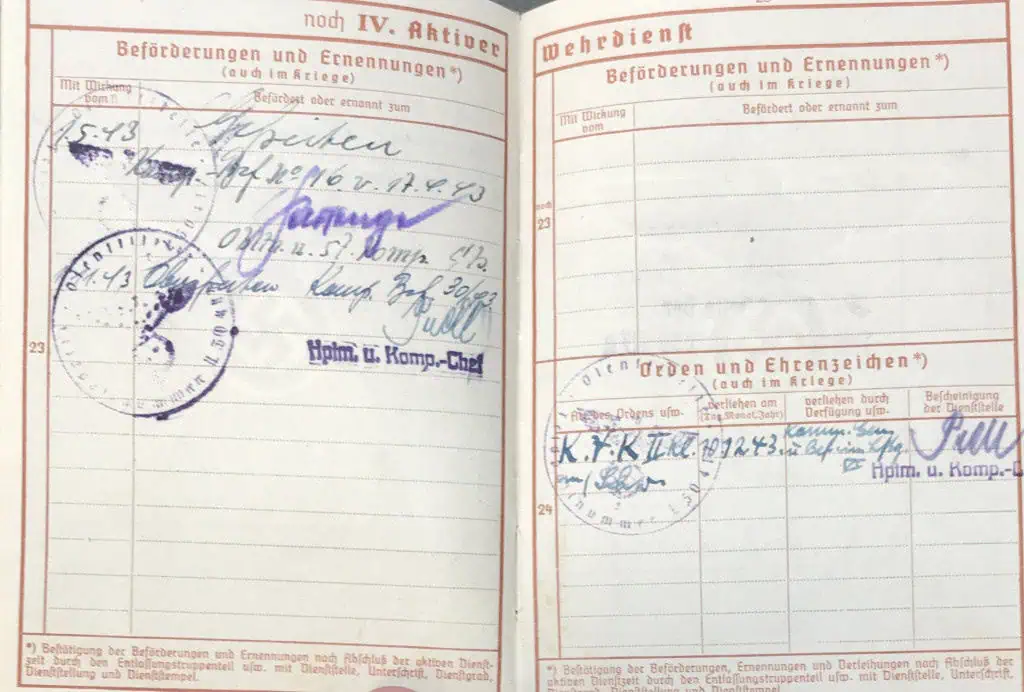 noch IV. Aktiver
Beförderungen und Ernennungen*)
(auch im Kriege)
Mit Wirkung
vom
Befördert oder ernannt zum
1.5.43
Gefreiten
Komp.-Bef. No 116 v. 17.4.43
u. Komp.
.43 Obergefreiten Komp. Bef. 30/43
Hptm. u. Komp.-Chef
23
*) Bestätigung der Beförderungen und Ernennungen nach Abschluß der aktiven Dienst-
zeit durch den Entlassungstruppenteil usw. mit Dienststelle, Unterschrift, Dienstgrad,
Dienststellung und Dienststempel.
Wehrdienst
Beförderungen und Ernennungen*)
(auch im Kriege)
Mit Wirkung
vom
Befördert oder ernannt zum
noch
23
Orden und Ehrenzeichen*)
(auch im Kriege)
Art des Ordens usw.
verliehen am
(Tag, Monat, Jahr)
verliehen durch
Verfügung usw.
Bescheinigung
der Dienststelle
K.V.K II kl.
12.43
m/Schw.
Hptm. u. Komp.-C
24
*) Bestätigung der Beförderungen, Ernennungen und Verleihungen nach Abschluß der
aktiven Dienstzeit durch den Entlassungstruppenteil usw. mit Dienststelle, Unterschrift,
Dienstgrad, Dienststellung und Dienststempel.